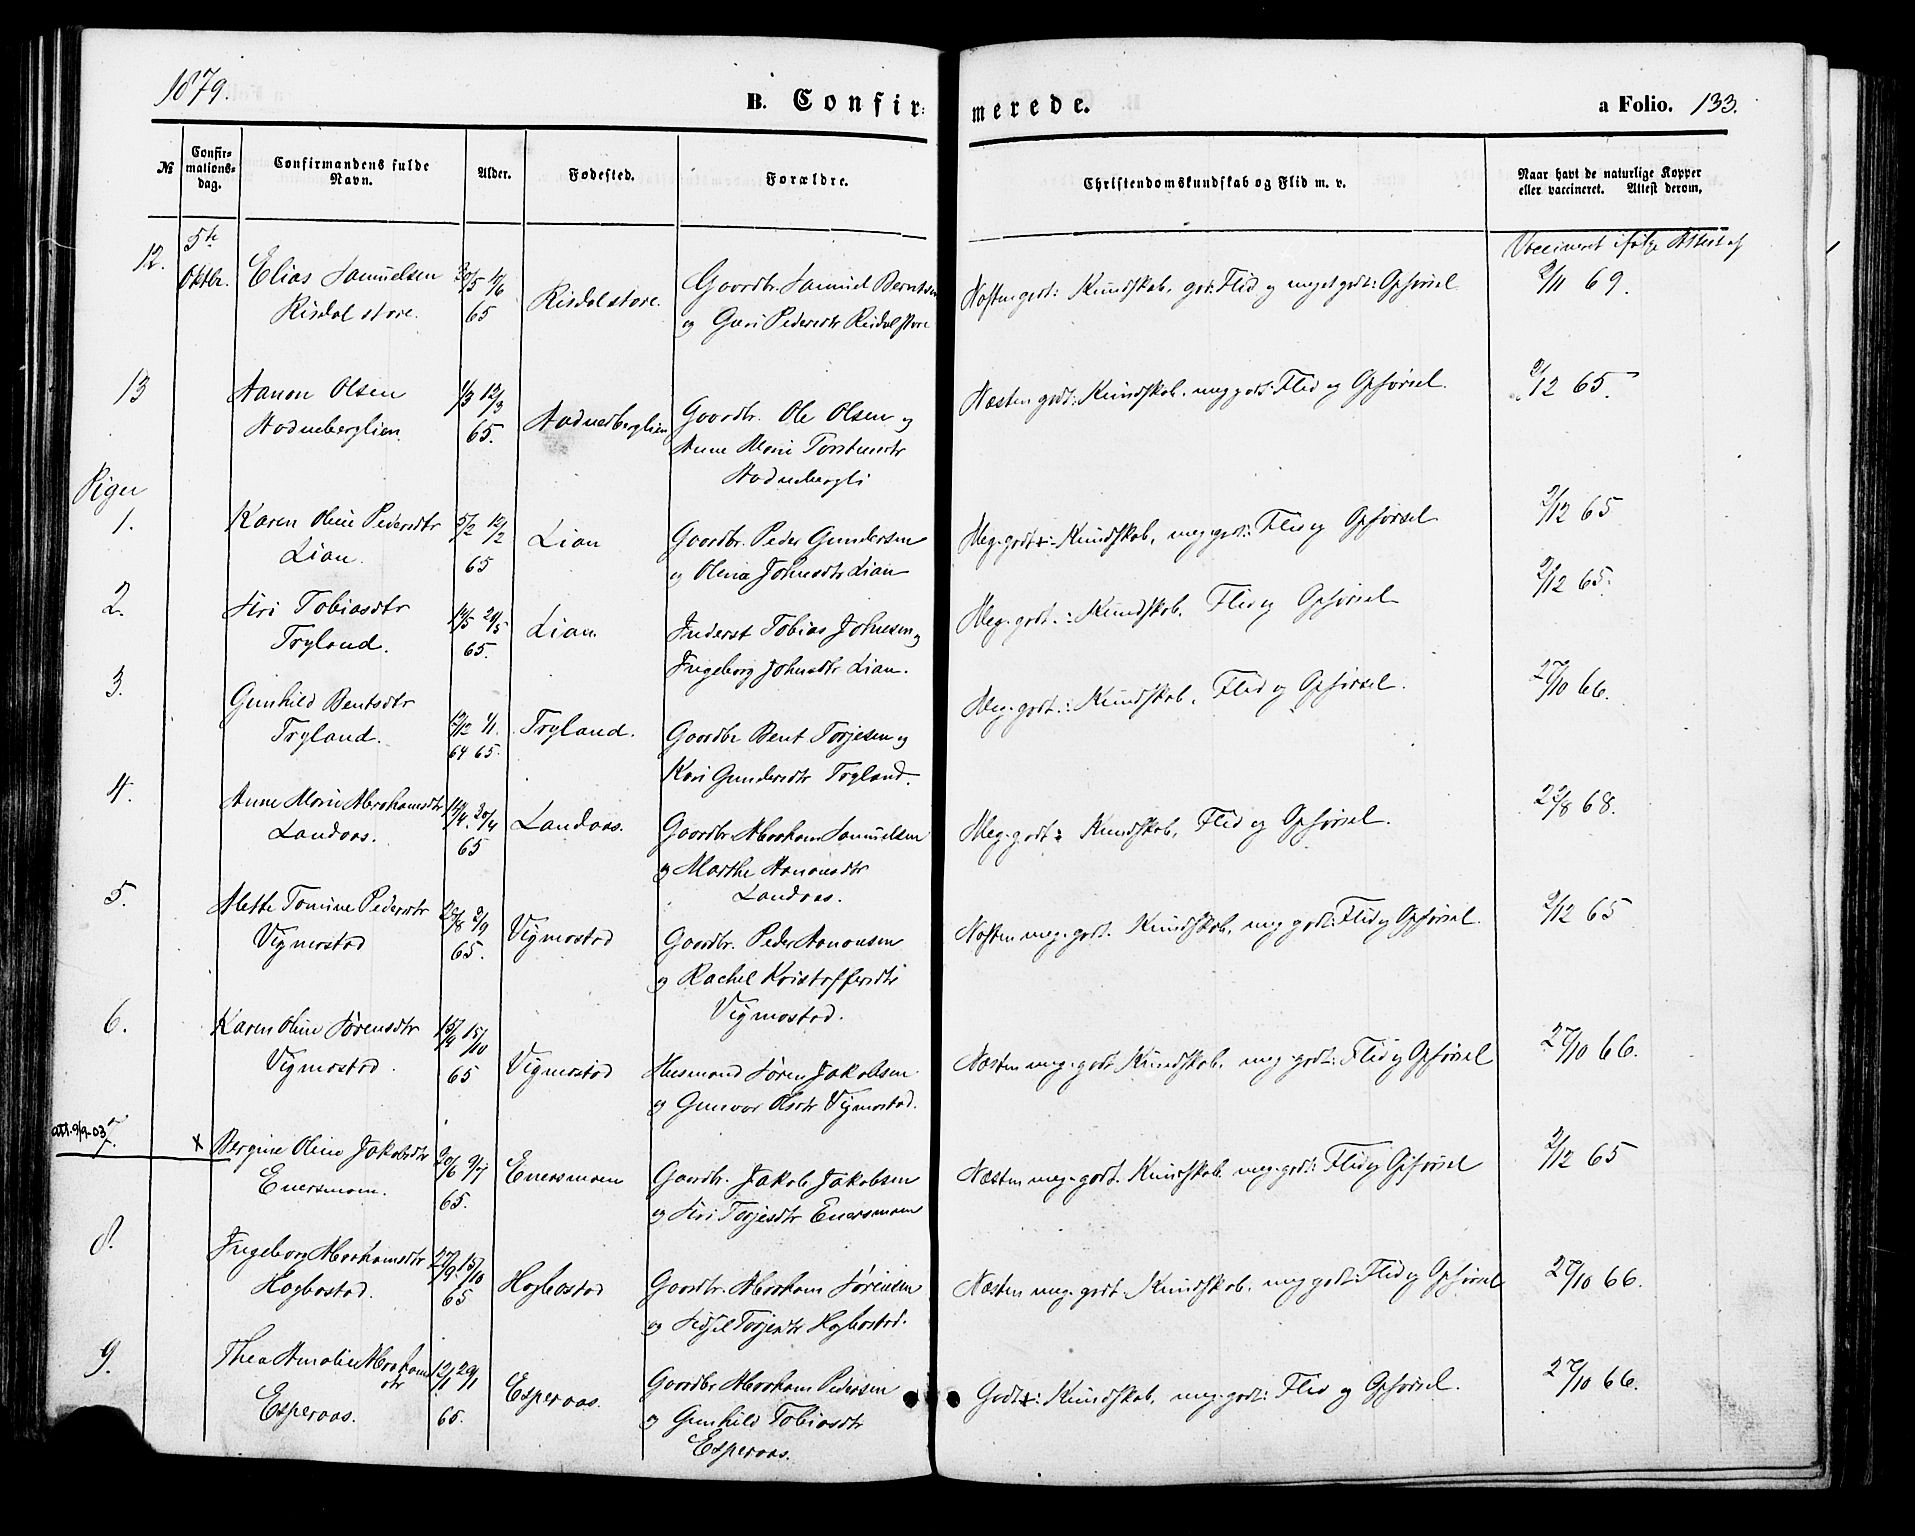 1879.
B. Confir:
merede.
a Folio. 133.
№
Confir-
mations-
dag.
Confirmandens fulde
Navn.
Alder.
Fødested.
Forældre.
Christendomskundskab og Flid m. v.
Naar havt de naturlige Kopper
eller vaccineret. Attest derom.
Vaccineret ifølge Attest af
12.
5te
Oktbr.
Elias Samuelsen
Risdal store.
30/5
65
Risdal store.
Gaardbr. Samuel Berntsen
og Guri Pedersdtr Risdal store
Næsten godt: Kundskab, god: Flid og meget godt: Opførsel
2/11 69.
13
Aanon Olsen
Aadneberglien.
1/3 12/3
65.
Aadneberglien
Gaardbr. Ole Olsen og
Anne Marie Torstensdtr
Aadnebergli
Næsten godt: Kundskab, meg godt: Flid og Opførsel.
2/12 65.
Piger
1.
Karen Oline Pedersdtr
Lian.
5/2 12/2
65
Lian
Gaardbr. Peder Gundersen
og Olena Johnsdtr Lian
Meg. godt: Kundskab, meg. godt: Flid og Opførsel
2/12 65
2.
Siri Tobiasdtr
Tryland.
14/5 24/5
65.
Lian.
Inderst Tobias Johnsen og
Ingeborg Johnsdtr Lian.
Meg. godt.: Kundskab, Flid og Opførsel
2/12 65.
3.
Gunhild Bentsdtr
Tryland.
12/12 1/1.
64 65.
Tryland.
Gaardbr Bent Torjesen og
Kari Gundersdtr Tryland.
Meg. godt.: Kundskab, Flid og Opførsel.
27/10 66.
4.
Anne Marie Abrahamsdtr
Landaas.
14/4. 30/4
65
Landaas.
Gaardbr Abraham Samuelsen
og Marthe Aanonsdtr
Landaas.
Meg. godt: Kundskab, Flid og Opførsel.
22/8 68.
5.
Mette Tomine Pedersdtr
Vigmostad
25/8 3/9
65.
Vigmostad
Gaardbr. Peder Aanonsen
og Rachel Kristoffersdtr
Vigmostad.
Næsten meg. godt. Kundskab, meg godt: Flid og Opførsel.
2/12 65
6.
Karen Oline Sørensdtr
Vigmostad.
15/10
65
Vigmostad
Husmand Søren Jakobsen
og Gunvor Olsdtr Vigmostad.
Næsten meg. godt Kundskab, meg. godt: Flid og Opførsel
27/10 66.
att. 9/9-03
7.
x Bergine Oline Jakobsdtr
Enersmoen.
20/6 9/7
65.
Enersmoen
Gaardbr. Jakob Jakobsen
og Siri Torjesdtr Enersmoen
Næsten meg. godt. Kundskab, meg. godt: Flid og Opførsel
2/12 65
8.
Ingeborg Abrahamsdtr
Høgbostad.
27/9. 15/10
65
Høgbostad
Gaardbr. Abraham Sørensen
og Sidsel Torjesdtr Høgbostad.
Næsten meg. godt. Kundskab, meg godt: Flid og Opførsel
27/10 66.
9.
Thea Amalie Abrahams
dtr
Esperaas.
12/1 29/1
65.
Esperaas.
Gaardbr Abraham Pedersen
og Gunhild Tobiasdtr
Esperaas.
Godt: Kundskab, meg. godt: Flid og Opførsel.
27/10 66.